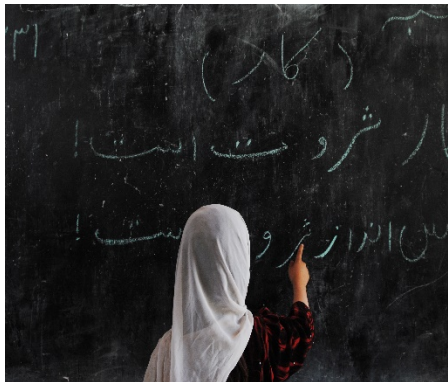 ( کار )
کار ثروت است !
پس انداز ثروت است !